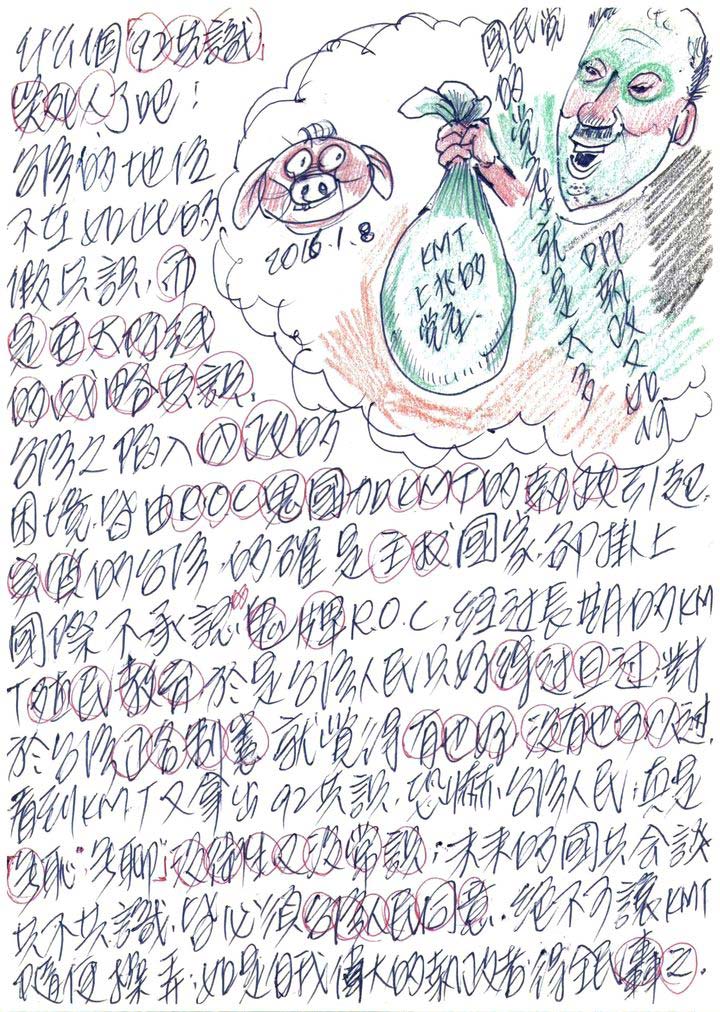 什么個92共識,
笑死人了吧!
台灣的地位
不在如此的
假共識,而
是亞太防線
的戰略共識,
台灣之陷入內政的
困境,皆由R.O.C鬼國加KMT的執政引起,
的台灣,的確是主权國家,卻掛上
國際不承認的鬼牌R.O.C,經过長期的KM
T殖民教育,於是台灣人民只好得过且过,對
於台灣正名制憲就覺得有也好,沒有也可以过,
看到KMT又拿出92共識,恐嚇台灣人民,真是
無恥"無聊"沒衛生又沒常識;未來的國共会談
共不共識,皆必須台灣人民同意,絕不可讓KMT
隨便操弄,如是自我偉大的執政者得全民轟之.
國民党
的党产
就是太多
DPP執政又如何
KMT
上兆的
党产.
2016.1.8